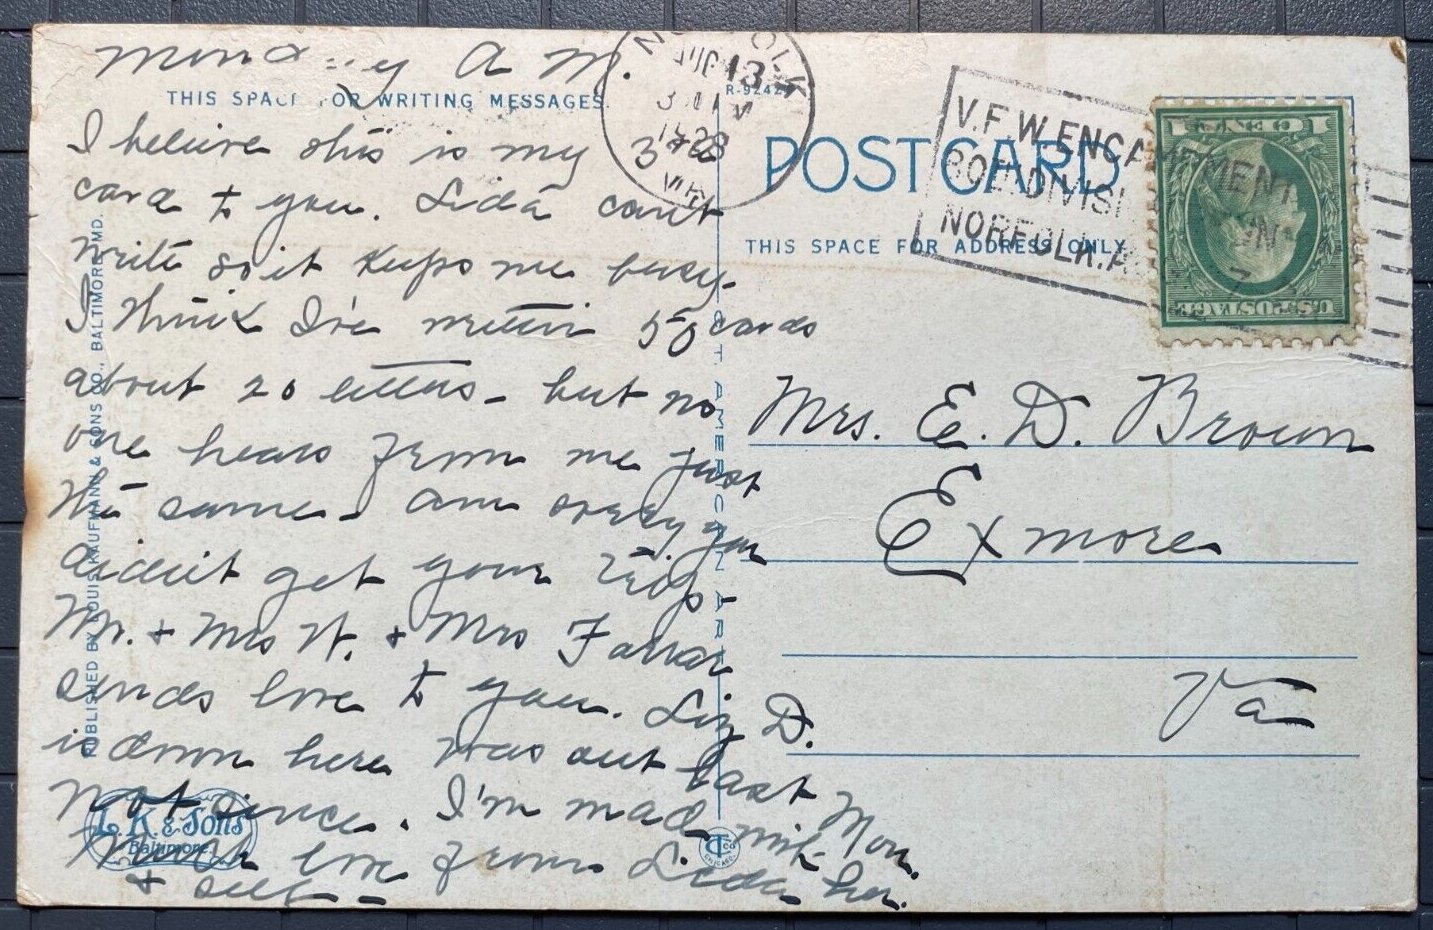 Monday A.M.
THIS SPACE FOR WRITING MESSAGES.
I believe this is my 3rd
card to you. Lida can't
write so it keeps me busy.
I think I've written 50 cards
about 20 letters - but no
one hears from me just
the same - am sorry you
didn't get your trip -
Mr. + Mrs W. + Mrs Farrar
sends love to you. Liz D.
is down here was out last Mon.
not since. I'm mad with her.
Much love from Lida
+ self -
PUBLISHED BY LOUIS KAUFMANN & SONS CO., BALTIMORE, MD.
L. K. & Sons
Baltimore
C.T. AMERICAN ART
CHICAGO
R-92427
NORFOLK
AUG 13
3
1928
VA.
POSTCARD
THIS SPACE FOR ADDRESS ONLY
V.F.W. ENCAMPMENT
NORFOLK.
1 CENT 1
U.S. POSTAGE
Mrs. E. D. Brown
Exmore
Va